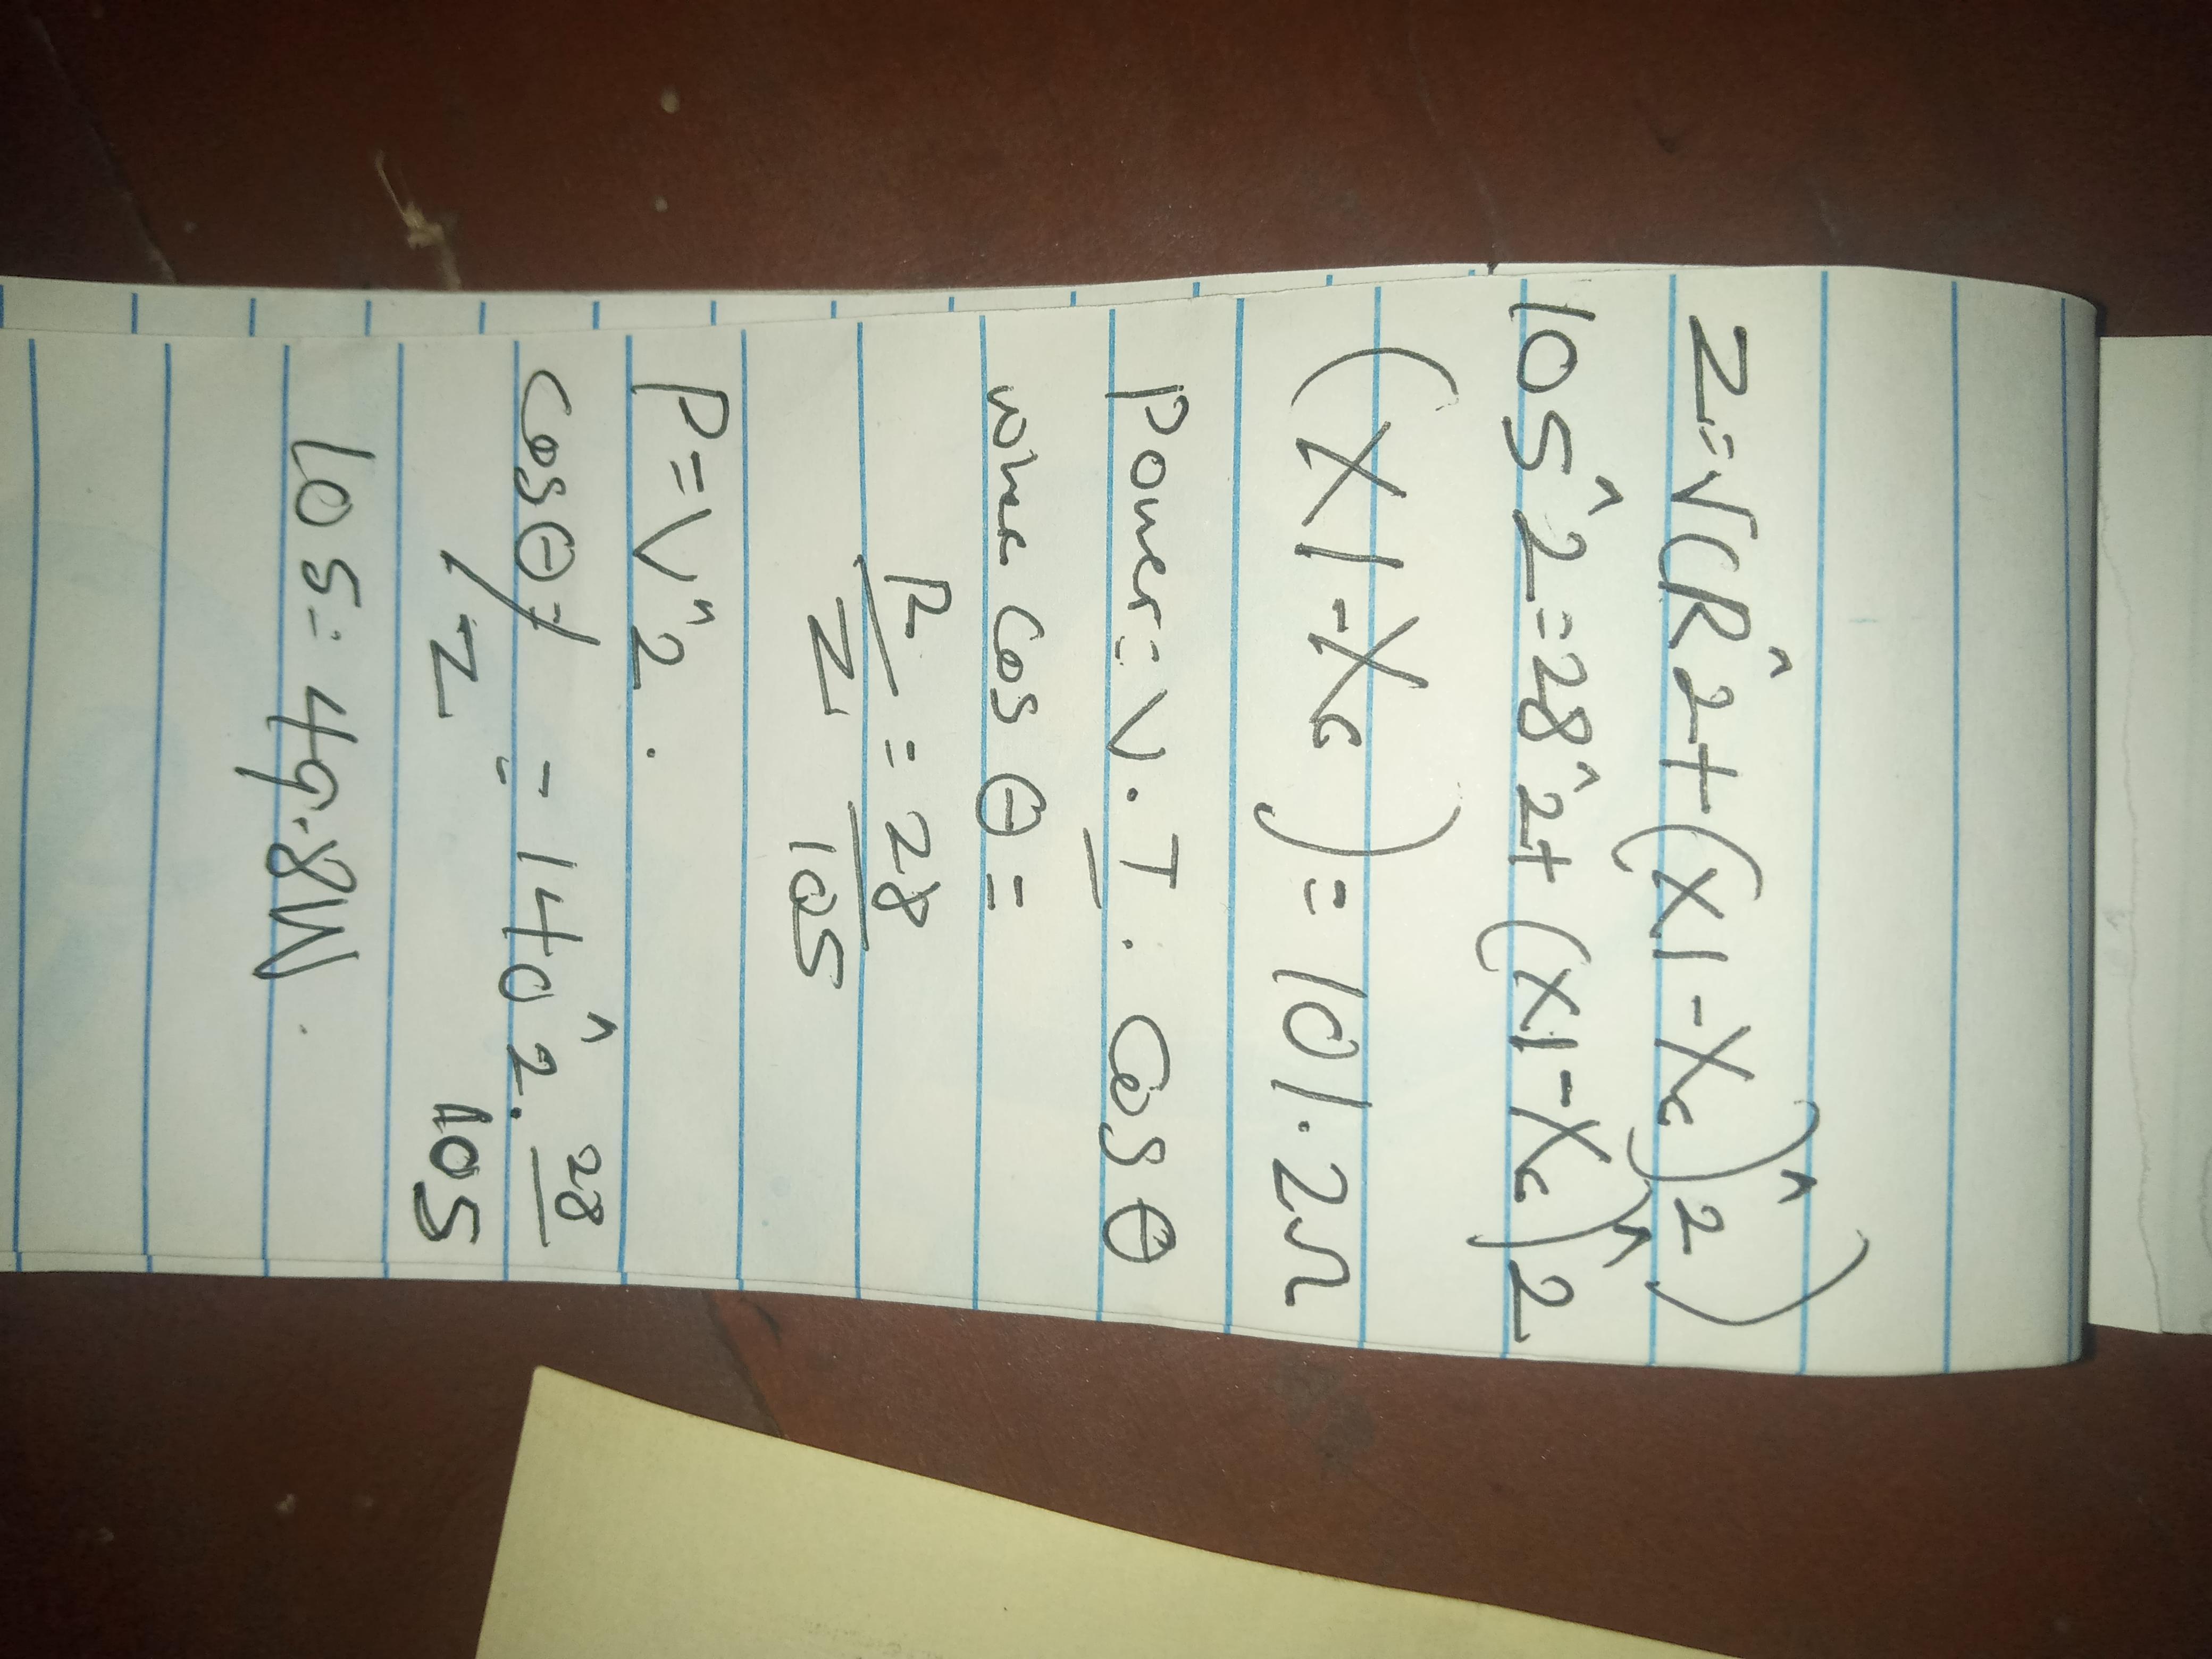 Z=√(R^2+(X1-Xc)^2)
105^2=28^2+(X1-Xc)^2
(X1-Xc)=101.2Ω
Power=V.I.Cosθ
where Cosθ=
R/Z=28/105
P=V^2.
Cosθ/Z=140^2.28/105
105=49.8W.